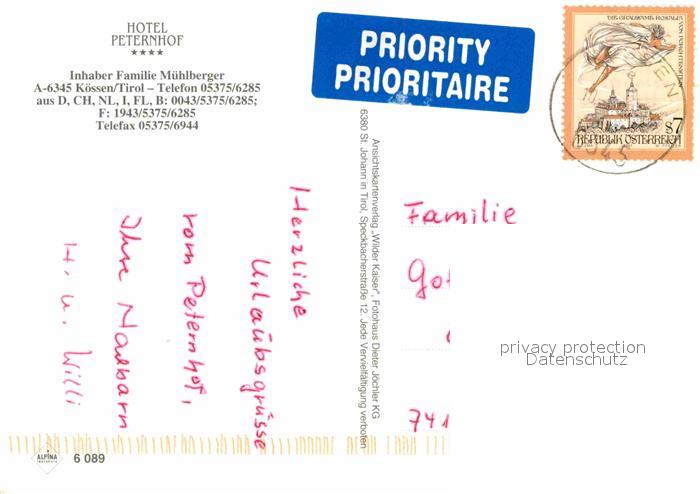 HOTEL
PETERNHOF
★★★★
Inhaber Familie Mühlberger
A-6345 Kössen/Tirol – Telefon 05375/6285
aus D, CH, NL, I, FL, B: 0043/5375/6285;
F: 1943/5375/6285
Telefax 05375/6944
PRIORITY
PRIORITAIRE
DIE GRAUSAME ROSALIA
VON FORCHTENSTEIN
S7
REPUBLIK ÖSTERREICH
6345
Ansichtskartenverlag „Wilder Kaiser", Fotohaus Dieter Jöchler KG
6380 St. Johann in Tirol, Speckbacherstraße 12. Jede Vervielfältigung verboten
Herzliche
Urlaubsgrüsse
vom Peternhof,
Ihre Nachbarn
H. u. Willi
Familie
Go
741
privacy protection
Datenschutz
ALPINA
6 089